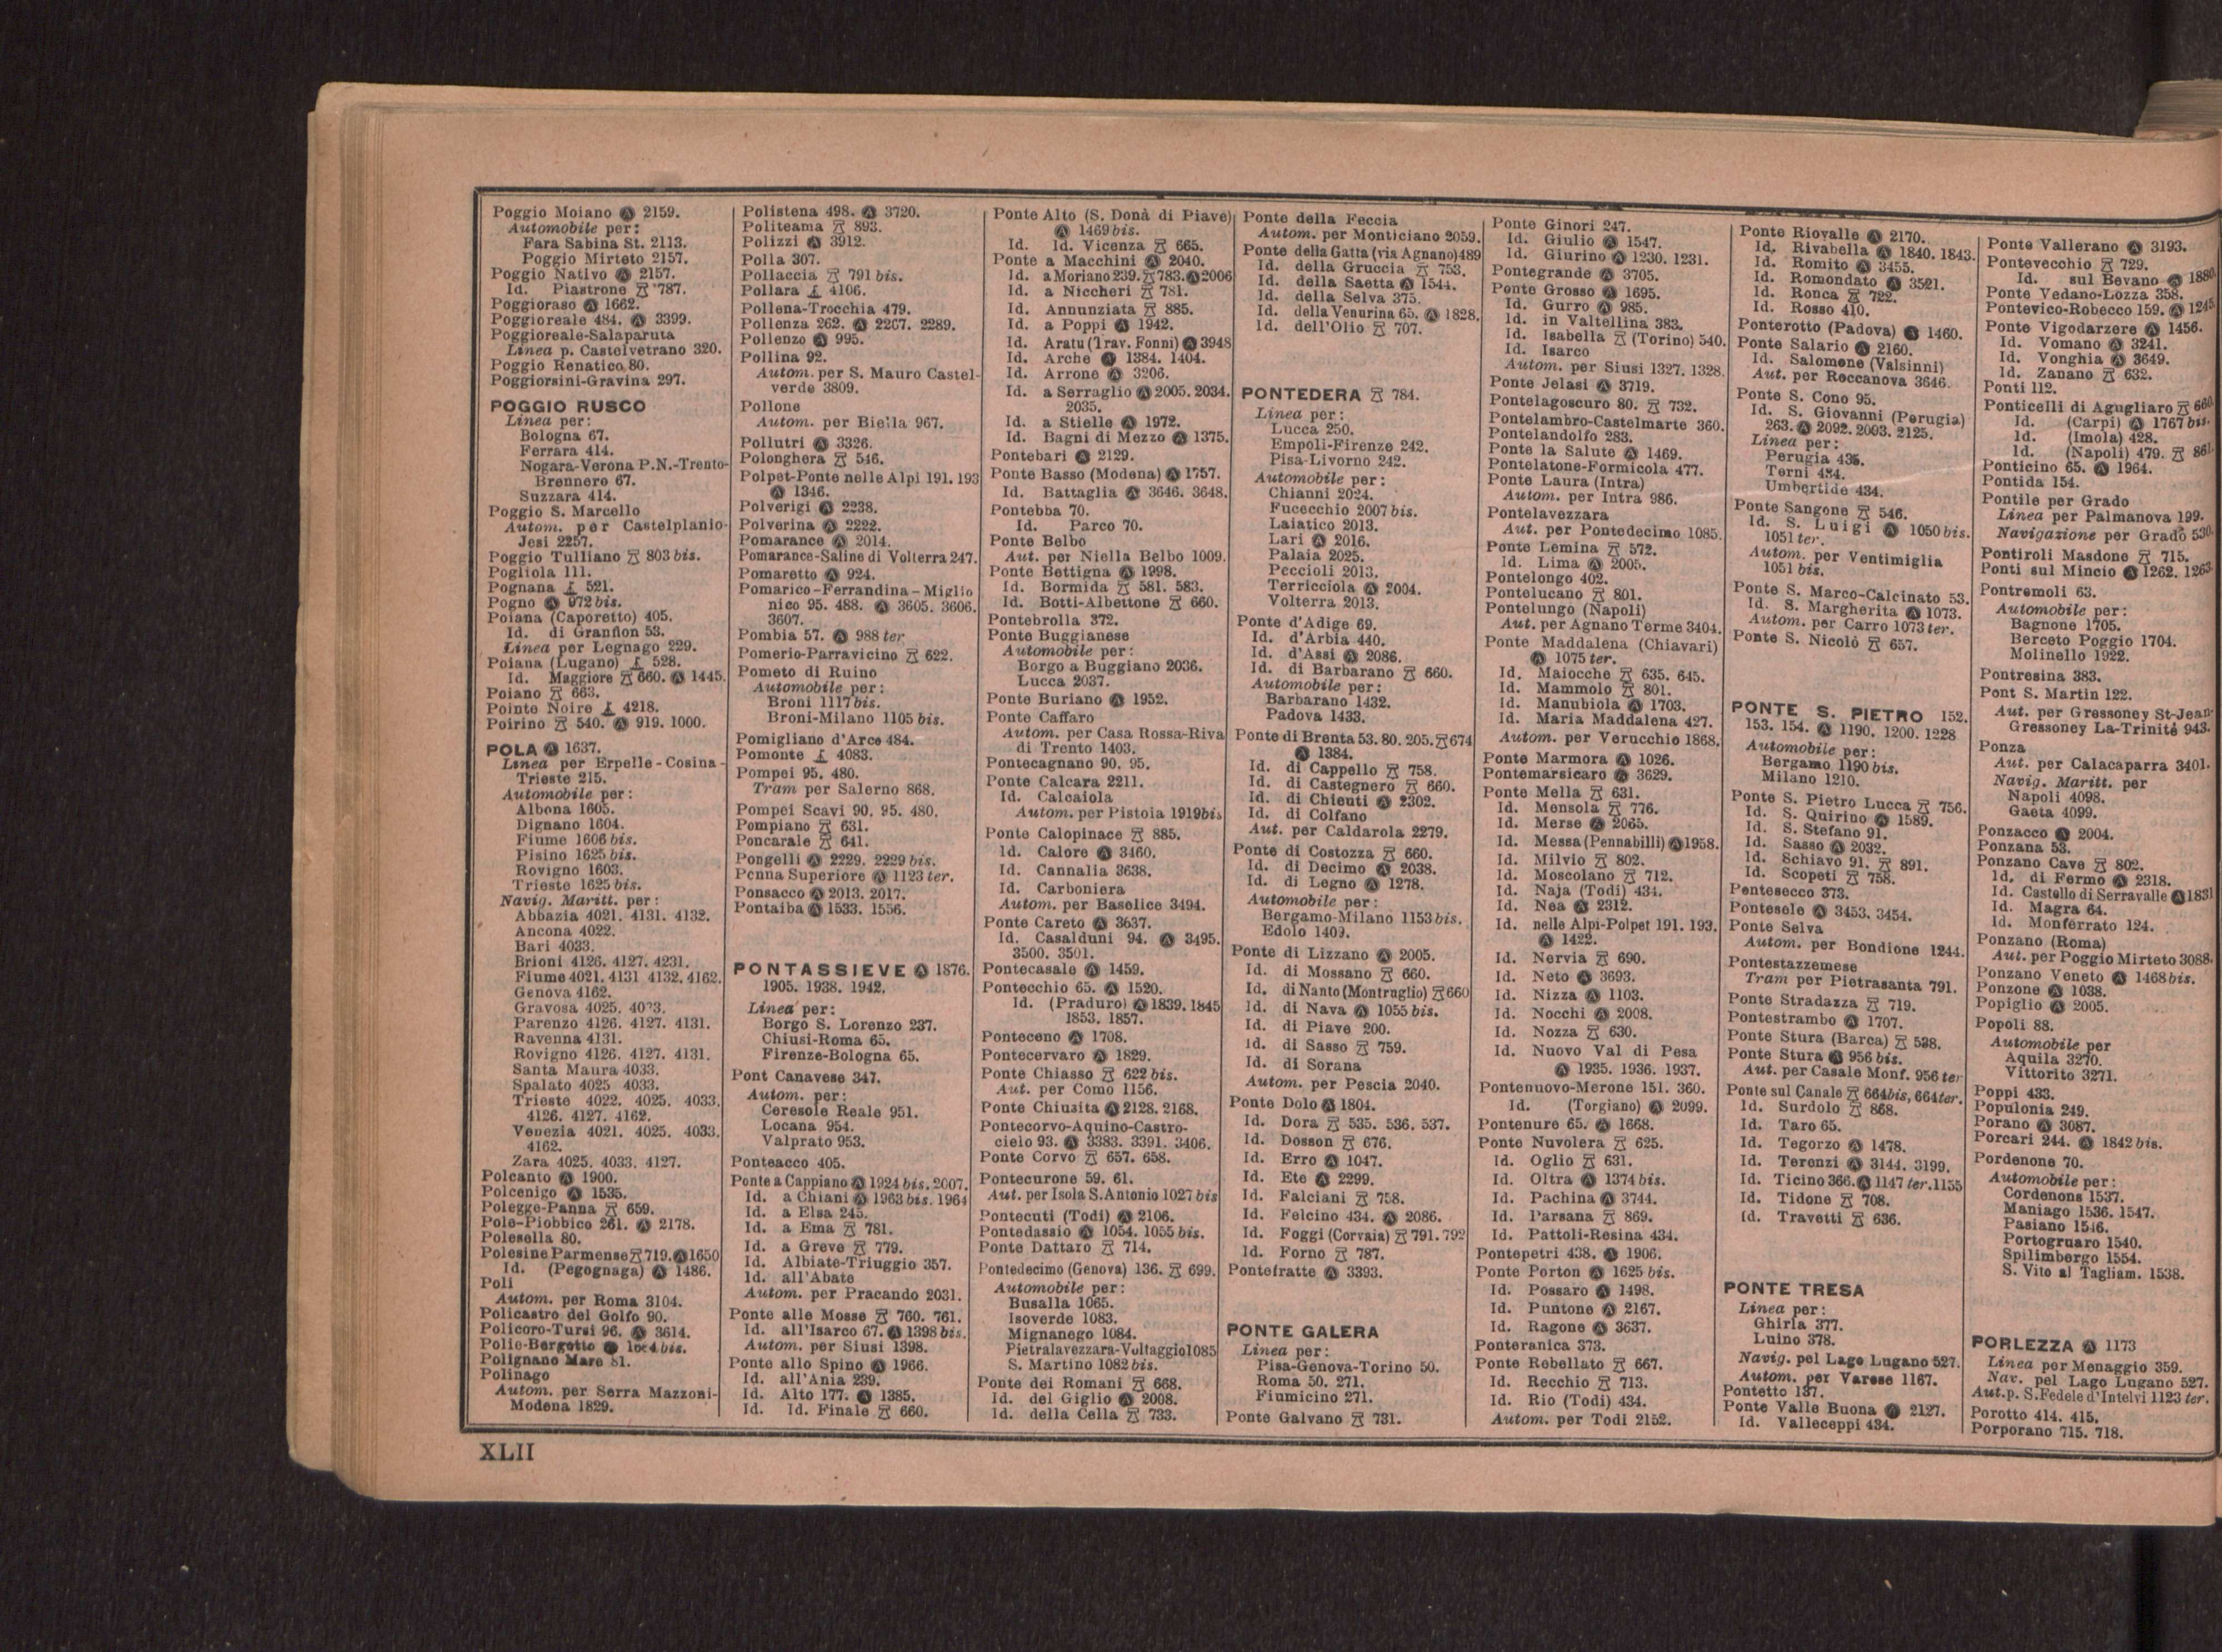 Poggio Moiano Ⓐ 2159.
Automobile per:
Fara Sabina St. 2113.
Poggio Mirteto 2157.
Poggio Nativo Ⓐ 2157.
Id. Piastrone 787.
Poggioraso Ⓐ 1662.
Poggioreale 484. Ⓐ 3399.
Poggioreale-Salaparuta
Linea p. Castelvetrano 320.
Poggio Renatico 80.
Poggiorsini-Gravina 297.
POGGIO RUSCO
Linea per:
Bologna 67.
Ferrara 414.
Nogara-Verona P.N.-Trento-
Brennero 67.
Suzzara 414.
Poggio S. Marcello
Autom. per Castelplanio-
Jesi 2257.
Poggio Tulliano 803 bis.
Pogliola 111.
Pognana 521.
Pogno Ⓐ 972 bis.
Poiana (Caporetto) 405.
Id. di Granfion 53.
Linea per Legnago 229.
Poiana (Lugano) 528.
Id. Maggiore 660. Ⓐ 1445.
Poiano 663.
Pointe Noire 4218.
Poirino 540. Ⓐ 919. 1000.
POLA Ⓐ 1637.
Linea per Erpelle-Cosina-
Trieste 215.
Automobile per:
Albona 1605.
Dignano 1604.
Fiume 1606 bis.
Pisino 1625 bis.
Rovigno 1603.
Trieste 1625 bis.
Navig. Maritt. per:
Abbazia 4021. 4131. 4132.
Ancona 4022.
Bari 4033.
Brioni 4126. 4127. 4231.
Fiume 4021. 4131 4132. 4162.
Genova 4162.
Gravosa 4025. 4033.
Parenzo 4126. 4127. 4131.
Ravenna 4131.
Rovigno 4126. 4127. 4131.
Santa Maura 4033.
Spalato 4025 4033.
Trieste 4022. 4025. 4033.
4126. 4127. 4162.
Venezia 4021. 4025. 4033.
4162.
Zara 4025. 4033. 4127.
Polcanto Ⓐ 1900.
Polcenigo Ⓐ 1535.
Polegge-Panna 659.
Pole-Piobbico 261. Ⓐ 2178.
Polesella 80.
Polesine Parmense 719. Ⓐ 1650
Id. (Pegognaga) Ⓐ 1486.
Poli
Autom. per Roma 3104.
Policastro del Golfo 90.
Policoro-Tursi 96. Ⓐ 3614.
Polignano Mare 81.
Polinago
Autom. per Serra Mazzoni-
Modena 1829.
Polistena 498. Ⓐ 3720.
Politeama 893.
Polizzi Ⓐ 3912.
Polla 307.
Pollaccia 791 bis.
Pollara 4106.
Pollena-Trocchia 479.
Pollenza 262. Ⓐ 2267. 2289.
Pollenzo Ⓐ 995.
Pollina 92.
Autom. per S. Mauro Castel-
verde 3809.
Pollone
Autom. per Biella 967.
Pollutri Ⓐ 3326.
Polonghera 546.
Polpet-Ponte nelle Alpi 191. 193
Ⓐ 1346.
Polverigi Ⓐ 2238.
Polverina Ⓐ 2222.
Pomarance Ⓐ 2014.
Pomarance-Saline di Volterra 247.
Pomaretto Ⓐ 924.
Pomarico-Ferrandina-Miglio
nico 95. 488. Ⓐ 3605. 3606.
3607.
Pombia 57. Ⓐ 988 ter
Pomerio-Parravicino 622.
Pometo di Ruino
Automobile per:
Broni 1117 bis.
Broni-Milano 1105 bis.
Pomigliano d'Arco 484.
Pomonte 4083.
Pompei 95. 480.
Tram per Salerno 868.
Pompei Scavi 90. 95. 480.
Pompiano 631.
Poncarale 641.
Pongelli Ⓐ 2229. 2229 bis.
Ponna Superiore Ⓐ 1123 ter.
Ponsacco Ⓐ 2013. 2017.
Pontaiba Ⓐ 1533. 1556.
PONTASSIEVE Ⓐ 1876.
1905. 1938. 1942.
Linea per:
Borgo S. Lorenzo 237.
Chiusi-Roma 65.
Firenze-Bologna 65.
Pont Canavese 347.
Autom. per:
Ceresole Reale 951.
Locana 954.
Valprato 953.
Ponteacco 405.
Ponte a Cappiano Ⓐ 1924 bis. 2007.
Id. a Chiani Ⓐ 1963 bis. 1964
Id. a Elsa 245.
Id. a Ema 781.
Id. a Greve 779.
Id. Albiate-Triuggio 357.
Id. all'Abate
Autom. per Pracando 2031.
Ponte alle Mosse 760. 761.
Id. all'Isarco 67. Ⓐ 1398 bis.
Autom. per Siusi 1398.
Ponte allo Spino Ⓐ 1966.
Id. all'Ania 239.
Id. Alto 177. Ⓐ 1385.
Id. Id. Finale 660.
Ponte Alto (S. Donà di Piave)
Ⓐ 1469 bis.
Id. Id. Vicenza 665.
Ponte a Macchini Ⓐ 2040.
Id. a Moriano 239. 783. Ⓐ 2006
Id. a Niccheri 781.
Id. Annunziata 885.
Id. a Poppi Ⓐ 1942.
Id. Aratu (Trav. Fonni) Ⓐ 3948
Id. Arche Ⓐ 1384. 1404.
Id. Arrone Ⓐ 3206.
Id. a Serraglio Ⓐ 2005. 2034.
2035.
Id. a Stielle Ⓐ 1972.
Id. Bagni di Mezzo Ⓐ 1375.
Pontebari Ⓐ 2129.
Ponte Basso (Modena) Ⓐ 1757.
Id. Battaglia Ⓐ 3646. 3648.
Pontebba 70.
Id. Parco 70.
Ponte Belbo
Aut. per Niella Belbo 1009.
Ponte Bettigna Ⓐ 1998.
Id. Bormida 581. 583.
Id. Botti-Albettone 660.
Pontebrolla 372.
Ponte Buggianese
Automobile per:
Borgo a Buggiano 2036.
Lucca 2037.
Ponte Buriano Ⓐ 1952.
Ponte Caffaro
Autom. per Casa Rossa-Riva
di Trento 1403.
Pontecagnano 90. 95.
Ponte Calcara 2211.
Id. Calcaiola
Autom. per Pistoia 1919bis
Ponte Calopinace 885.
Id. Calore Ⓐ 3460.
Id. Cannalia 3638.
Id. Carboniera
Autom. per Baselice 3494.
Ponte Careto Ⓐ 3637.
Id. Casalduni 94. Ⓐ 3495.
3500. 3501.
Pontecasale Ⓐ 1459.
Pontecchio 65. Ⓐ 1520.
Id. (Praduro) Ⓐ 1839. 1845
1853. 1857.
Ponteceno Ⓐ 1708.
Pontecervaro Ⓐ 1829.
Ponte Chiasso 622 bis.
Aut. per Como 1156.
Ponte Chiusita Ⓐ 2128. 2168.
Pontecorvo-Aquino-Castro-
cielo 93. Ⓐ 3383. 3391. 3406.
Ponte Corvo 657. 658.
Pontecurone 59. 61.
Aut. per Isola S. Antonio 1027 bis
Pontecuti (Todi) Ⓐ 2106.
Pontedassio Ⓐ 1054. 1055 bis.
Ponte Dattaro 714.
Pontedecimo (Genova) 136. 699.
Automobile per:
Busalla 1065.
Isoverde 1083.
Mignanego 1084.
Pietralavezzara-Voltaggio1085
S. Martino 1082 bis.
Ponte dei Romani 668.
Id. del Giglio Ⓐ 2008.
Id. della Cella 733.
Ponte della Feccia
Autom. per Monticiano 2059.
Ponte della Gatta (via Agnano) 489
Id. della Gruccia 753.
Id. della Saetta Ⓐ 1544.
Id. della Selva 375.
Id. della Venurina 65. Ⓐ 1828.
Id. dell'Olio 707.
PONTEDERA 784.
Linea per:
Lucca 250.
Empoli-Firenze 242.
Pisa-Livorno 242.
Automobile per:
Chianni 2024.
Fucecchio 2007 bis.
Laiatico 2013.
Lari Ⓐ 2016.
Palaia 2025.
Peccioli 2013.
Terricciola Ⓐ 2004.
Volterra 2013.
Ponte d'Adige 69.
Id. d'Arbia 440.
Id. d'Assi Ⓐ 2086.
Id. di Barbarano 660.
Automobile per:
Barbarano 1432.
Padova 1433.
Ponte di Brenta 53. 80. 205. 674
Ⓐ 1384.
Id. di Cappello 758.
Id. di Castegnero 660.
Id. di Chienti Ⓐ 2302.
Id. di Colfano
Aut. per Caldarola 2279.
Ponte di Costozza 660.
Id. di Decimo Ⓐ 2038.
Id. di Legno Ⓐ 1278.
Automobile per:
Bergamo-Milano 1153 bis.
Edolo 1409.
Ponte di Lizzano Ⓐ 2005.
Id. di Mossano 660.
Id. di Nanto (Montruglio) 660
Id. di Nava Ⓐ 1055 bis.
Id. di Piave 200.
Id. di Sasso 759.
Id. di Sorana
Autom. per Pescia 2040.
Ponte Dolo Ⓐ 1804.
Id. Dora 535. 536. 537.
Id. Dosson 676.
Id. Erro Ⓐ 1047.
Id. Ete Ⓐ 2299.
Id. Falciani 758.
Id. Felcino 434. Ⓐ 2086.
Id. Foggi (Corvaia) 791. 792
Id. Forno 787.
Pontefratte Ⓐ 3393.
PONTE GALERA
Linea per:
Pisa-Genova-Torino 50.
Roma 50. 271.
Fiumicino 271.
Ponte Galvano 731.
Ponte Ginori 247.
Id. Giulio Ⓐ 1547.
Id. Giurino Ⓐ 1230. 1231.
Pontegrande Ⓐ 3705.
Ponte Grosso Ⓐ 1695.
Id. Gurro Ⓐ 985.
Id. in Valtellina 383.
Id. Isabella (Torino) 540.
Id. Isarco
Autom. per Siusi 1327. 1328.
Ponte Jelasi Ⓐ 3719.
Pontelagoscuro 80. 732.
Pontelambro-Castelmarte 360.
Pontelandolfo 283.
Ponte la Salute Ⓐ 1469.
Pontelatone-Formicola 477.
Ponte Laura (Intra)
Autom. per Intra 986.
Pontelavezzara
Aut. per Pontedecimo 1085.
Ponte Lemina 572.
Id. Lima Ⓐ 2005.
Pontelongo 402.
Pontelucano 801.
Pontelungo (Napoli)
Aut. per Agnano Terme 3404.
Ponte Maddalena (Chiavari)
Ⓐ 1075 ter.
Id. Maiocche 635. 645.
Id. Mammolo 801.
Id. Manubiola Ⓐ 1703.
Id. Maria Maddalena 427.
Autom. per Verucchio 1868.
Ponte Marmora Ⓐ 1026.
Pontemarsicaro Ⓐ 3629.
Ponte Mella 631.
Id. Mensola 776.
Id. Merse Ⓐ 2065.
Id. Messa (Pennabilli) Ⓐ 1958.
Id. Milvio 802.
Id. Moscolano 712.
Id. Naja (Todi) 434.
Id. Nea Ⓐ 2312.
Id. nelle Alpi-Polpet 191. 193.
Ⓐ 1422.
Id. Nervia 690.
Id. Neto Ⓐ 3693.
Id. Nizza Ⓐ 1103.
Id. Nocchi Ⓐ 2008.
Id. Nozza 630.
Id. Nuovo Val di Pesa
Ⓐ 1935. 1936. 1937.
Pontenuovo-Merone 151. 360.
Id. (Torgiano) Ⓐ 2099.
Pontenure 65. Ⓐ 1668.
Ponte Nuvolera 625.
Id. Oglio 631.
Id. Oltra Ⓐ 1374 bis.
Id. Pachina Ⓐ 3744.
Id. Parsana 869.
Id. Pattoli-Resina 434.
Pontepetri 438. Ⓐ 1906.
Ponte Porton Ⓐ 1625 bis.
Id. Possaro Ⓐ 1498.
Id. Puntone Ⓐ 2167.
Id. Ragone Ⓐ 3637.
Ponteranica 373.
Ponte Rebellato 667.
Id. Recchio 713.
Id. Rio (Todi) 434.
Autom. per Todi 2152.
Ponte Riovalle Ⓐ 2170.
Id. Rivabella Ⓐ 1840. 1843.
Id. Romito Ⓐ 3455.
Id. Romondato Ⓐ 3521.
Id. Ronca 722.
Id. Rosso 410.
Ponterotto (Padova) Ⓐ 1460.
Ponte Salario Ⓐ 2160.
Id. Salomone (Valsinni)
Aut. per Roccanova 3646.
Ponte S. Cono 95.
Id. S. Giovanni (Perugia)
263. Ⓐ 2092. 2003. 2125.
Linea per:
Perugia 435.
Terni 434.
Umbertide 434.
Ponte Sangone 546.
Id. S. Luigi Ⓐ 1050 bis.
1051 ter.
Autom. per Ventimiglia
1051 bis.
Ponte S. Marco-Calcinato 53.
Id. S. Margherita Ⓐ 1073.
Autom. per Carro 1073 ter.
Ponte S. Nicolò 657.
PONTE S. PIETRO 152.
153. 154. Ⓐ 1190. 1200. 1228
Automobile per:
Bergamo 1190 bis.
Milano 1210.
Ponte S. Pietro Lucca 756.
Id. S. Quirino Ⓐ 1589.
Id. S. Stefano 91.
Id. Sasso Ⓐ 2032.
Id. Schiavo 91. 891.
Id. Scopeti 758.
Pontesecco 373.
Pontesele Ⓐ 3453. 3454.
Ponte Selva
Autom. per Bondione 1244.
Pontestazzemese
Tram per Pietrasanta 791.
Ponte Stradazza 719.
Pontestrambo Ⓐ 1707.
Ponte Stura (Barca) 538.
Ponte Stura Ⓐ 956 bis.
Aut. per Casale Monf. 956 ter
Ponte sul Canale 664bis, 664ter.
Id. Surdolo 868.
Id. Taro 65.
Id. Tegorzo Ⓐ 1478.
Id. Terenzi Ⓐ 3144. 3199.
Id. Ticino 366. Ⓐ 1147 ter. 1155
Id. Tidone 708.
Id. Travetti 636.
PONTE TRESA
Linea per:
Ghirla 377.
Luino 378.
Navig. pel Lago Lugano 527.
Autom. per Varese 1167.
Pontetto 137.
Ponte Valle Buona Ⓐ 2127.
Id. Valleceppi 434.
Ponte Vallerano Ⓐ 3193.
Pontevecchio 729.
Id. sul Bevano Ⓐ 1880.
Ponte Vedano-Lozza 358.
Pontevico-Robecco 159. Ⓐ 1245.
Ponte Vigodarzere Ⓐ 1456.
Id. Vomano Ⓐ 3241.
Id. Vonghia Ⓐ 3649.
Id. Zanano 632.
Ponti 112.
Ponticelli di Agugliaro 660
Id. (Carpi) Ⓐ 1767 bis.
Id. (Imola) 428.
Id. (Napoli) 479. 861.
Ponticino 65. Ⓐ 1964.
Pontida 154.
Pontile per Grado
Linea per Palmanova 199.
Navigazione per Grado 530.
Pontiroli Masdone 715.
Ponti sul Mincio Ⓐ 1262. 1263.
Pontremoli 63.
Automobile per:
Bagnone 1705.
Berceto Poggio 1704.
Molinello 1922.
Pontresina 383.
Pont S. Martin 122.
Aut. per Gressoney St-Jean-
Gressoney La-Trinité 943.
Ponza
Aut. per Calacaparra 3401.
Navig. Maritt. per
Napoli 4098.
Gaeta 4099.
Ponzacco Ⓐ 2004.
Ponzana 53.
Ponzano Cave 802.
Id. di Fermo Ⓐ 2318.
Id. Castello di Serravalle Ⓐ 1831
Id. Magra 64.
Id. Monferrato 124.
Ponzano (Roma)
Aut. per Poggio Mirteto 3088.
Ponzano Veneto Ⓐ 1468 bis.
Ponzone Ⓐ 1038.
Popiglio Ⓐ 2005.
Popoli 88.
Automobile per
Aquila 3270.
Vittorito 3271.
Poppi 433.
Populonia 249.
Porano Ⓐ 3087.
Porcari 244. Ⓐ 1842 bis.
Pordenone 70.
Automobile per:
Cordenons 1537.
Maniago 1536. 1547.
Pasiano 1546.
Portogruaro 1540.
Spilimbergo 1554.
S. Vito al Tagliam. 1538.
PORLEZZA Ⓐ 1173
Linea per Menaggio 359.
Nav. pel Lago Lugano 527.
Aut. p. S. Fedele d'Intelvi 1123 ter.
Porotto 414. 415.
Porporano 715. 718.
XLII